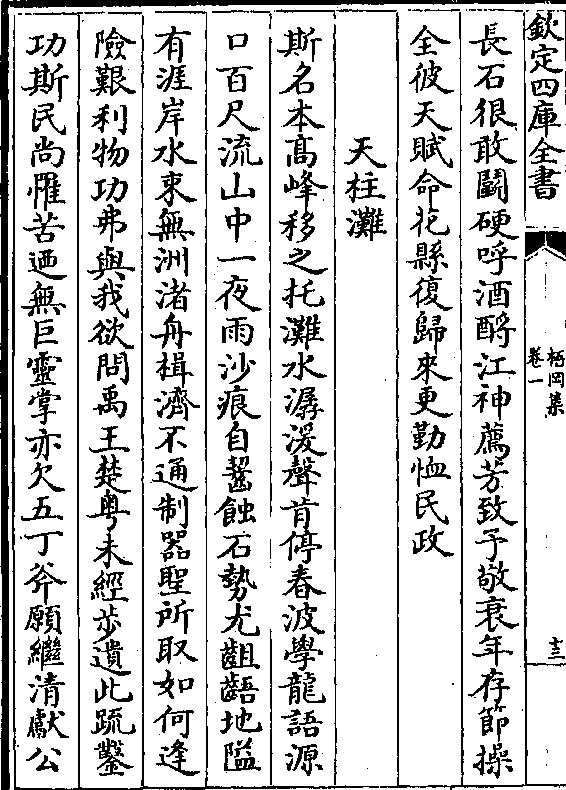 欽定四庫全書
栝岡集
卷一
十三
長石很敢鬭硬呼酒酹江神薦芳致予敬衰年存節操
全彼天賦命花縣復歸來更勤恤民政
天柱灘
斯名本高峰移之托灘水潺湲聲肯停春波學龍語源
口百尺流山中一夜雨沙痕自齧蝕石勢尤齟齬地隘
有涯岸水束無洲渚舟楫濟不通制器聖所取如何逢
險艱利物功弗與我欲問禹王楚粤未經歩遺此疏鑿
功斯民尚罹苦迺無巨靈掌亦欠五丁斧願繼清獻公